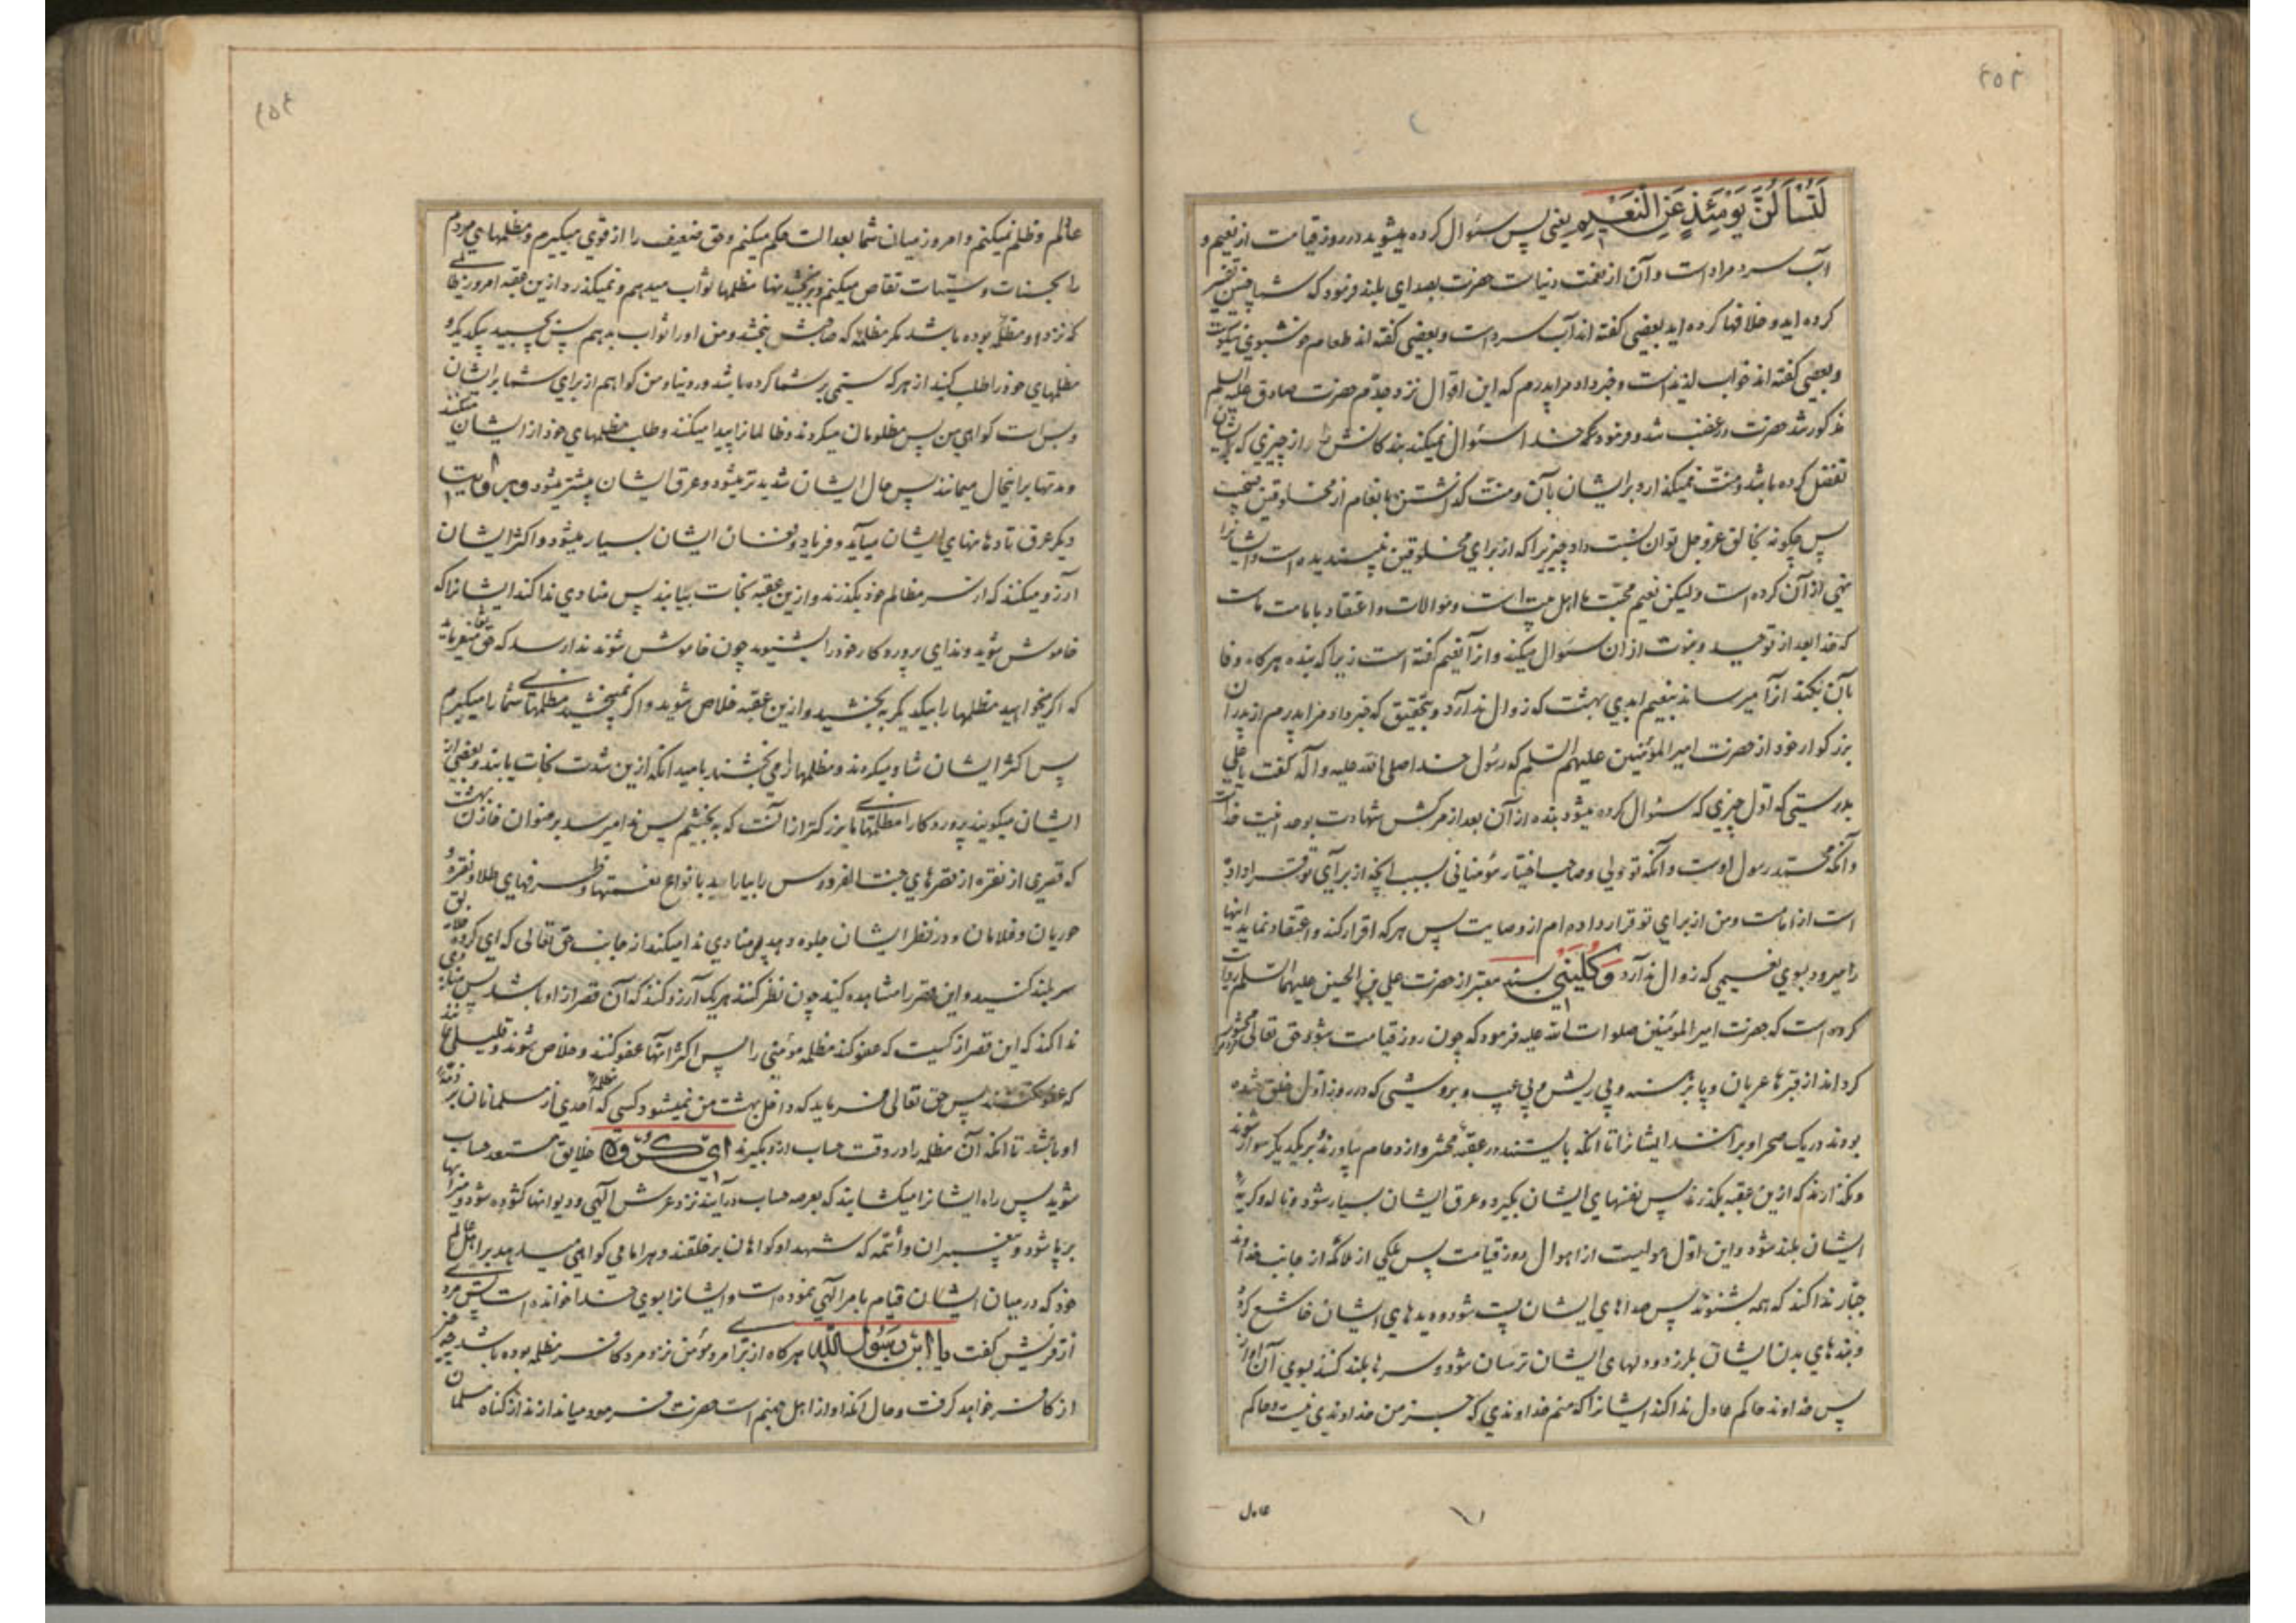 ۴۵۳
لَتُسْأَلُنَّ يَوْمَئِذٍ عَنِ النَّعِيمِ یعنی پس سئوال کرده میشوید در روز قیامت از نعیم و
آب سرد مراد است و آن از نعمت دنیاست حضرت بصدای بلند فرمود که شما چنین تفسیر
کرده اید و خلافها کرده اید بعضی گفته اند آب سرد است و بعضی گفته اند طعام خوشبوی نیکوست
و بعضی گفته اند خواب لذیذ است و خبر داد مرا پدرم که این اقوال نزد جدّم حضرت صادق علیه السلم
مذکور شد حضرت در غضب شد و فرمود که خدا سئوال نمیکند بندکانش را از چیزی که برایشان
تفضل کرده باشد و منّت نمیکذارد بر ایشان بآن و منّت کذاشتن بانعام از مخلوقین قبیحست
پس چگونه بخالق عزوجل توان نسبت داد چیزیرا که از برای مخلوقین نپسندیده است و ایشانرا
نهی از آن کرده است و لیکن نعیم محبّت ما اهل بیت است و موالات و اعتقاد بامامت ماست
که خدا بعد از توحید و نبوّت از ان سئوال میکند و از آنعیم گفته است زیرا که بنده هرکاه وفا
بآن بکند از آ میرساند بنعیم ابدی بهشت که زوال ندارد و بتحقیق که خبر داد مرا پدرم از پدران
بزرکوار خود از حضرت امیر المؤمنین علیهم السّلم که رسول خدا صلی الله علیه و آله گفت یا علی
بدرستی که اوّل چیزی که سئوال کرده میشود بنده از آن بعد از مرکش شهادت بوحدانیت خداست
و آنکه محمّد رسول اوست و آنکه تو ولی و صاحب اختیار مؤمنانی بسبب آنچه از برای تو قرار داده
است از امامت و من از برای تو قرار داده ام از وصایت پس هر که اقرار کند و اعتقاد نماید اینها
را میرود بسوی نعیمی که زوال ندارد وَكُلَيْنِي بسند معتبر از حضرت علی بن الحسین علیهما السّلم روایت
کرده است که حضرت امیر المؤمنین صلوات الله علیه فرمود که چون روز قیامت شود حق تعالی محشور
کرداند از قبرها عریان و پابرهنه و بی ریش و بی عیب و بروشی که در روز اوّل خلق شده
بودند در یک صحرا و برانند ایشانرا تا آنکه بایستند در عقبهٔ محشر و ازدحام بیاورند بر یکدیکر سوار شوند
و نکذارند که ازین عقبه بکذرند پس نفسهای ایشان بکیرد و عرق ایشان بسیار شود و ناله و کریهٔ
ایشان بلند شود و این اوّل هولیست از اهوال روز قیامت پس ملکی از ملائکه از جانب خداوند
جبّار ندا کند که همه بشنوند پس صداهای ایشان پست شود و دیدهای ایشان خاشع کردد
و بندهای بدن ایشان بلرزد و دلهای ایشان ترسان شود و سرها بلند کنند بسوی آن آواز
پس خداوند حاکم عادل ندا کند ایشانرا که منم خداوندی که جز من خداوندی نیست و حاکم
عادل
۴۵۴
عالم و ظلم نمیکنم و امروز میان شما بعدالت حکم میکنم و حق ضعیف را از قوی میکیرم و مظلمهای مردم
را بحسنات و سیّئات تقاص میکنم و بر بخشیدنها مظلمها ثواب میدهم و نمیکذرد ازین عقبه امروز ظالمی
که نزد او مظلمه بوده باشد مکر مظلمهٔ که صاحبش بخشد و من او را ثواب بدهم پس بچسبید بیکدیکر و
مظلمهای خود را طلب کنید از هر که ستمی بر شما کرده باشد در دنیا و من کواهم از برای شما بر ایشان
و بس است کواهی من پس مظلومان میکردند و ظالمانرا پیدا میکنند و طلب مظلمهای خود از ایشان میکنند
و مدتها بر اینحال میمانند پس حال ایشان شدیدتر میشود و عرق ایشان بیشتر میشود و بروایت
دیکر عرق تا دهانهای ایشان میآید و فریاد و فغان ایشان بسیار میشود و اکثر ایشان
آرزو میکنند که از سر مظالم خود بکذرند و ازین عقبه نجات بیابند پس منادی ندا کند ایشانرا که
خاموش شوید و ندای پروردکار خود را بشنوید چون خاموش شوند ندا رسد که حق تعالی میفرماید
که اکر میخواهید مظلمها را بیکدیکر به بخشید و ازین عقبه خلاص شوید و اکر نمیبخشید مظلمهای شما را میکیرم
پس اکثر ایشان شاد میکردند و مظلمها را می بخشند بامید آنکه ازین شدت نجات یابند و بعضی از
ایشان میکویند پروردکارا مظلمهای ما بزرکتر از آنست که به بخشیم پس ندا میرسد برضوان خازن بهشت
که قصری از نقره از قصرهای جنت الفردوس را بیارایید بانواع نعمتها و ظرفهای طلا و نقره و
حوریان و غلامان و در نظر ایشان جلوه دهید پس منادی ندا میکند از جانب حق تعالی که ای کروه خلایق
سر بلند کنید و این قصر را مشاهده کنید چون نظر کنند هر یک آرزو کنند که آن قصر از او باشد پس منادی
ندا کند که این قصر از کسیست که عفو کند مظلمه مؤمنی را پس اکثر آنها عفو کنند و خلاص شوند و قلیلی بمانند
که عفو نکنند پس حق تعالی فرماید که داخل بهشت من نمیشود کسی که مظلمهٔ احدی از مسلمانان بر ذمّهٔ
او باشد تا آنکه آن مظلمه را در وقت حساب ازو بکیرند ای کروه خلایق مستعد حساب
شوید پس راه ایشانرا میکشایند که بعرصه حساب درآیند نزد عرش الهی و دیوانها کشوده شود و میزانها
برپا شود و پیغمبران و ائمه که شهدا و کواهان بر خلقند و هر امامی کواهی میدهد بر اهل عالم
خود که در میان ایشان قیام بامر آلهی نموده است و ایشانرا بسوی خدا خوانده است پس مردی
از قریش گفت یا ابن رسول الله هرکاه از برای مرد مؤمن نزد مرد کافر مظلمه بوده باشد چه چیز
از کافر خواهد کرفت و حال آنکه او از اهل جهنم است حضرت فرمود میاندازند از کناه مسلمان